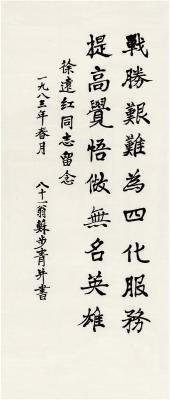 戰勝艱難為四化服務
提高覺悟做無名英雄
徐遠紅同志留念
一九八三年春月
八十一翁蘇步青并書